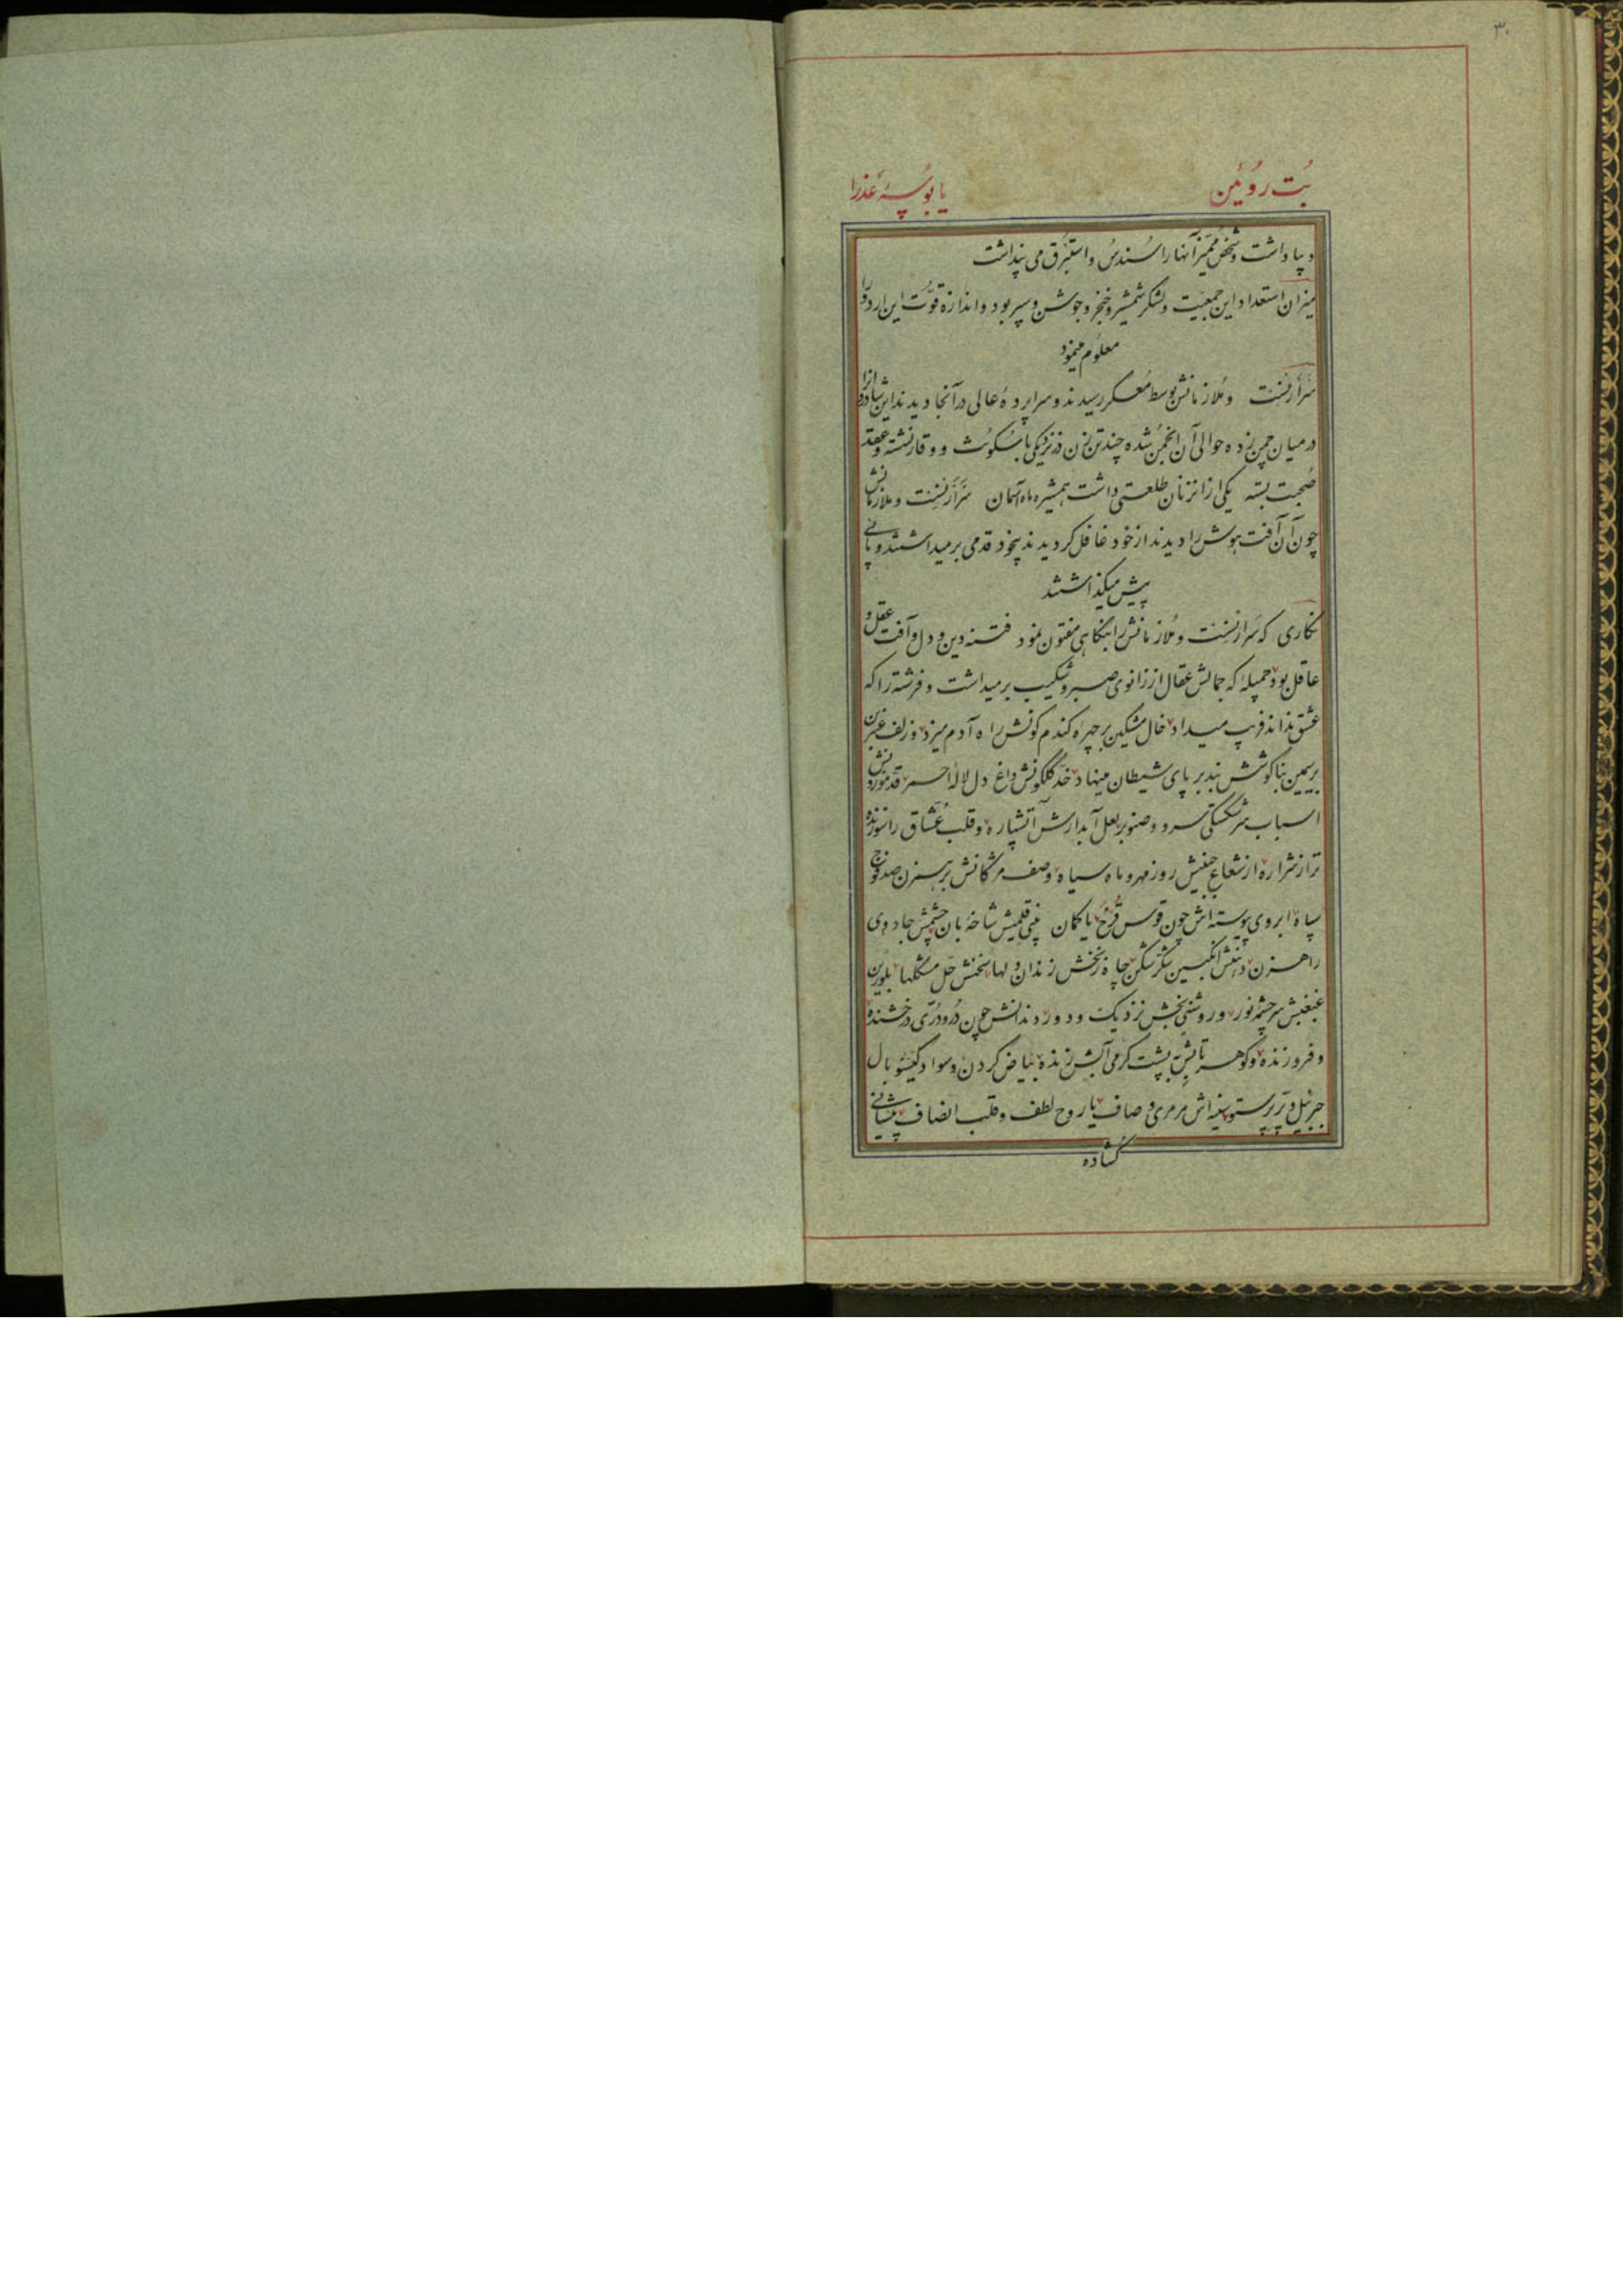 ۳۰
بُت روئین
یا بوسهٔ عذرا
دیبا داشت و شخص ممیز آنها را سُندس و استبرق می پنداشت
میزان استعداد این جمعیت و لشکر شمشیر و خنجر و جوشن و سپر بود و اندازهٔ قوّت این اردو را
معلوم مینمود
سَراَرنِست و مُلازمانش بوسط مُعسکر رسیدند و سراپردهٔ عالی در آنجا دیدند این شادروان را
در میان چمن زده حوالی آن انجمن شده چند تن زن در نزدیکی با سُکوت و وقار نشسته و عقد
صُحبت بسته یکی از انزنان طلعتی داشت همشیره ماه آسمان سَراَرنِست و ملازمانش
چون آن آفت هوش را دیدند از خود غافل گردیدند بیخود قدمی برمیداشتند و پائی
پیش میگذاشتند
نگاری که سَراَرنِست و مُلازمانش را بنگاهی مفتون نمود فتنه دین و دل و آفت عقل و
عاقل بود جمیلهٔ که جمالش عقال از زانوی صبر و شکیب برمیداشت و فرشته را که
عشق نداند فریب میداد خال مشکین بر چهرهٔ گندم گونش راه آدم میزد و زلف عنبرین
بر سیمین بناگوشش بند بر پای شیطان مینهاد خدّ گلگونش داغ دل لالهٔ احمر قدّ موزونش
اسباب سرشکستگی سرو و صنوبر لعل آبدارش آتشپاره و قلب عُشاق را سوزنده
تر از شراره از شعاع جبینش روز مهر و ماه سیاه و صف مژگانش رهزن صد فوج
سپاه ابروی پیوسته اش چون قوس قُزح یا کمان بینی قلمیش شاخهٔ بان چشمش جادوی
راهزن دهنش انگبین شکّرشکن چاه زنخش زندان دلها سخنش حل مشکلها بلورین
غبغبش سرچشمه نور و روشنی بخش نزدیک و دور دندانش چون دُر و دُرّی درخشنده
و فروزنده و گوهر تابش به پشت گرمی آبش زنده بیاض گردن و سواد گیسو بال
جبرئیل و پر پرستو سینه اش مرمری و صاف یا روح لطف و قلب انصاف پیشانی
گشاده